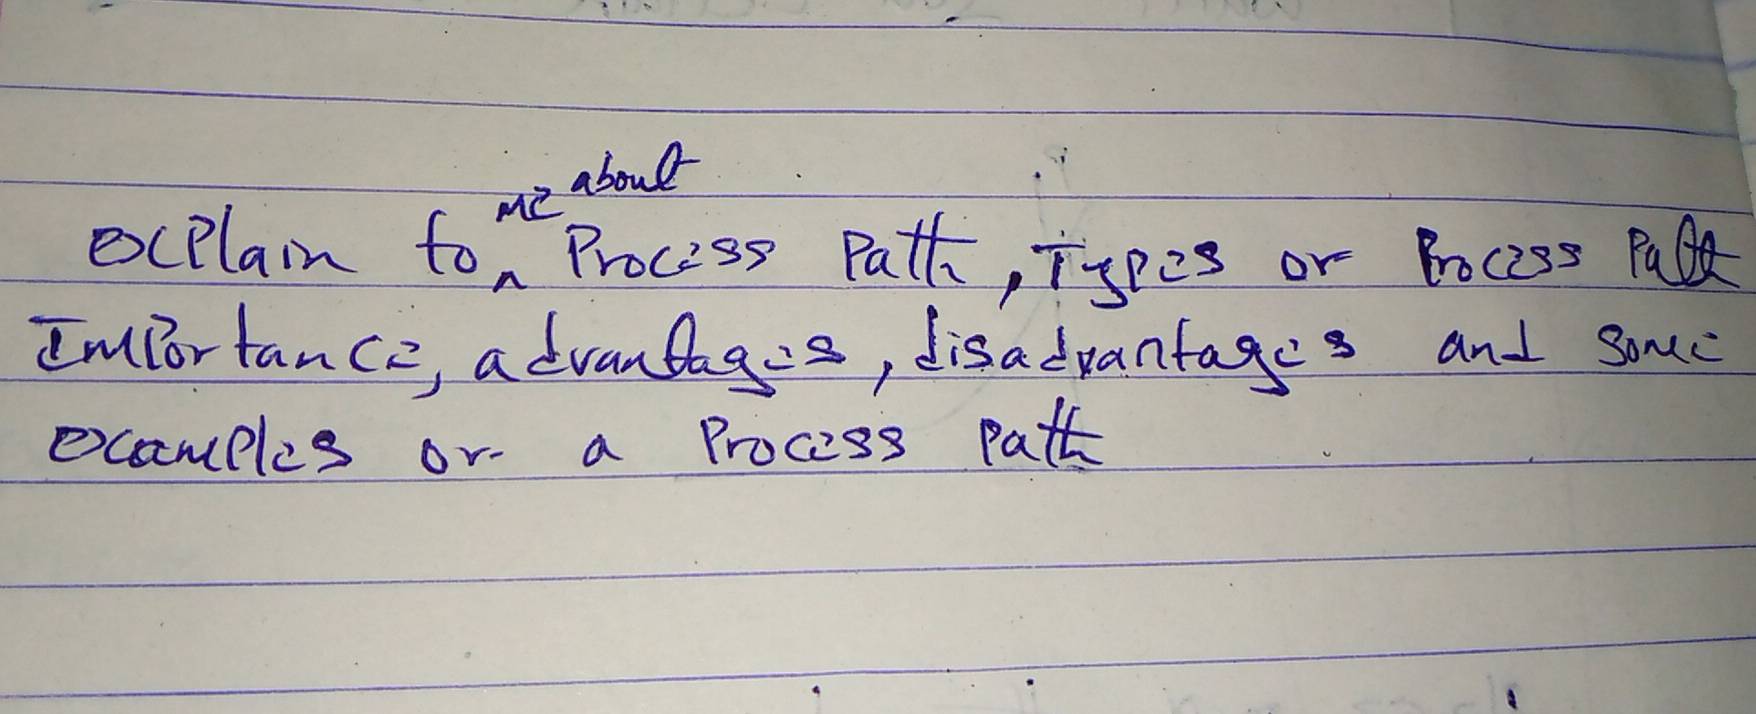 explain to me about Process Path, Types or Process Path
Importance, advantages, disadvantages and some
examples or a Process Path